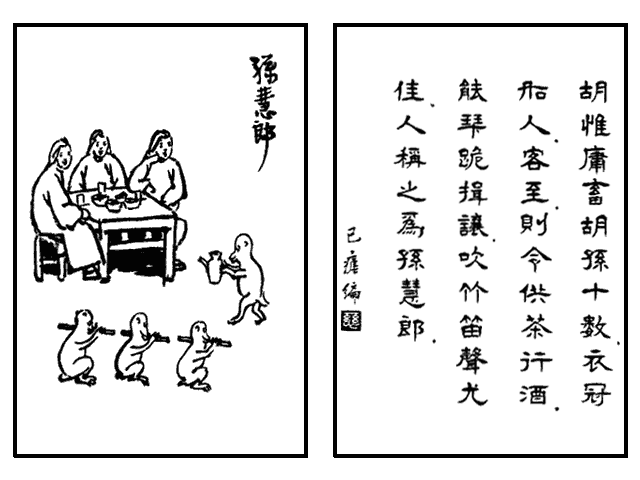 孫慧郎
胡惟庸畜胡孫十數.衣冠
如人.客至.則令供茶行酒.
能拜跪揖讓.吹竹笛聲尤
佳.人稱之爲孫慧郎.
編